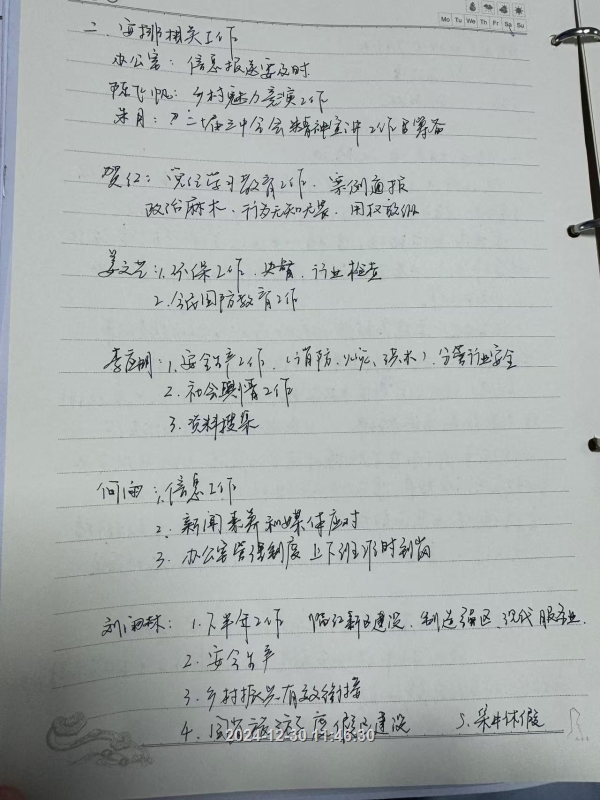 Mo Tu We Th Fr Sa Su
二、安排相关工作
办公室：信息报送要及时
陈飞帆：乡村魅力竞演工作
朱月：二十届三中全会精神宣讲工作 筹备
贺红：党纪学习教育工作、案例通报
政治麻木、行为无知无畏、用权放纵
姜文芝：1.环保工作、央督、行业检查
2.全民国防教育工作
李应明：1.安全生产工作（消防、 、洪水）、分管行业安全
2.社会舆情工作
3.资料搜集
何雨：1.信息工作
2.新闻素养和媒体应对
3.办公室管理制度 上下班准时到岗
刘雨林：1.下半年工作 临江新区建设、制造强区、现代服务业
2.安全生产
3.乡村振兴有效衔接
4.国家 旅游度假区建设 5.采井休假
2024-12-30 11:46:30